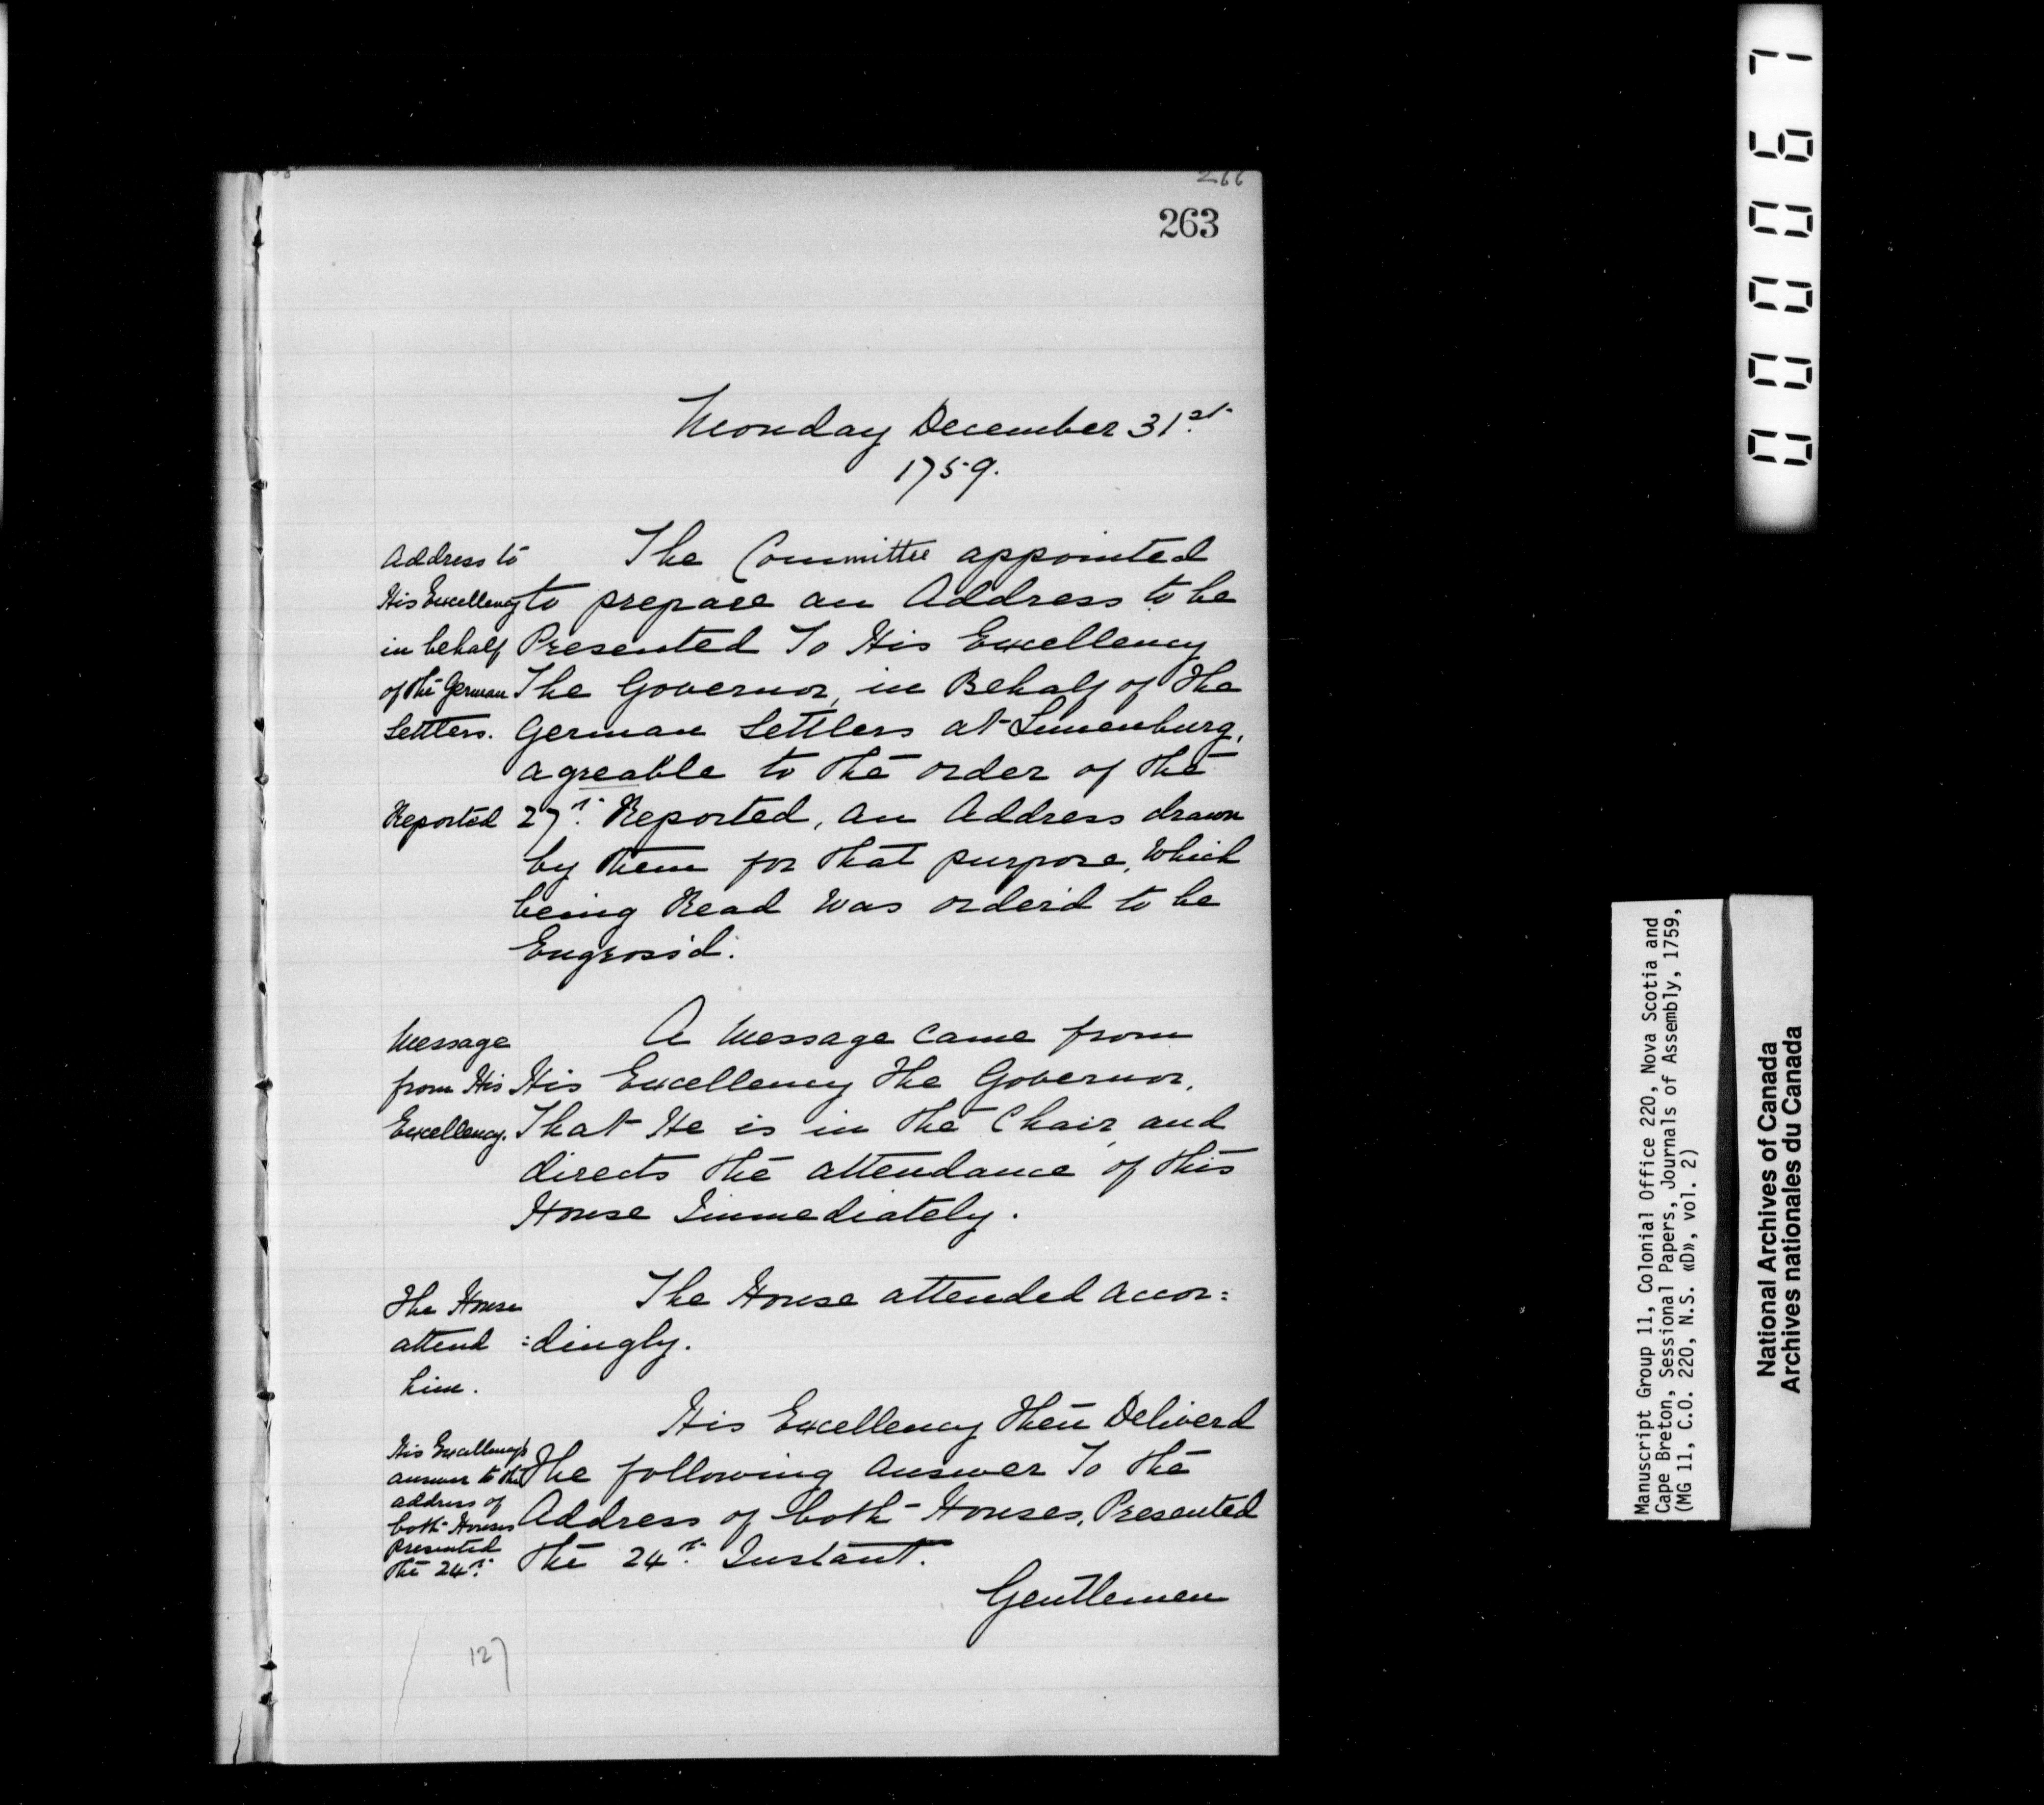 266
263
Monday December 31st
1759.
Address to
His Excellency
in behalf
of the German
Settlers.
The Committee appointed
to prepare an Address to be
Presented To His Excellency
The Governor, in Behalf of the
German Settlers at Lunenburg,
agreable to the order of the
Reported
27th Reported, an Address drawn
by them for that purpose, Which
being Read was order'd to be
Engross'd.
Message
from His
Excellency.
A Message came from
His Excellency the Governor,
That He is in the Chair, and
directs the attendance of this
House Immediately.
The House
attend
him.
The House attended accor:
:dingly.
His Excellency's
answer to the
address of
both Houses
presented
the 24th
His Excellency then Deliverd
the following answer To the
Address of both Houses, Presented
the 24th Instant.
Gentlemen
127
000067
Manuscript Group 11, Colonial Office 220, Nova Scotia and
Cape Breton, Sessional Papers, Journals of Assembly, 1759,
(MG 11, C.O. 220, N.S. «D», vol. 2)
National Archives of Canada
Archives nationales du Canada